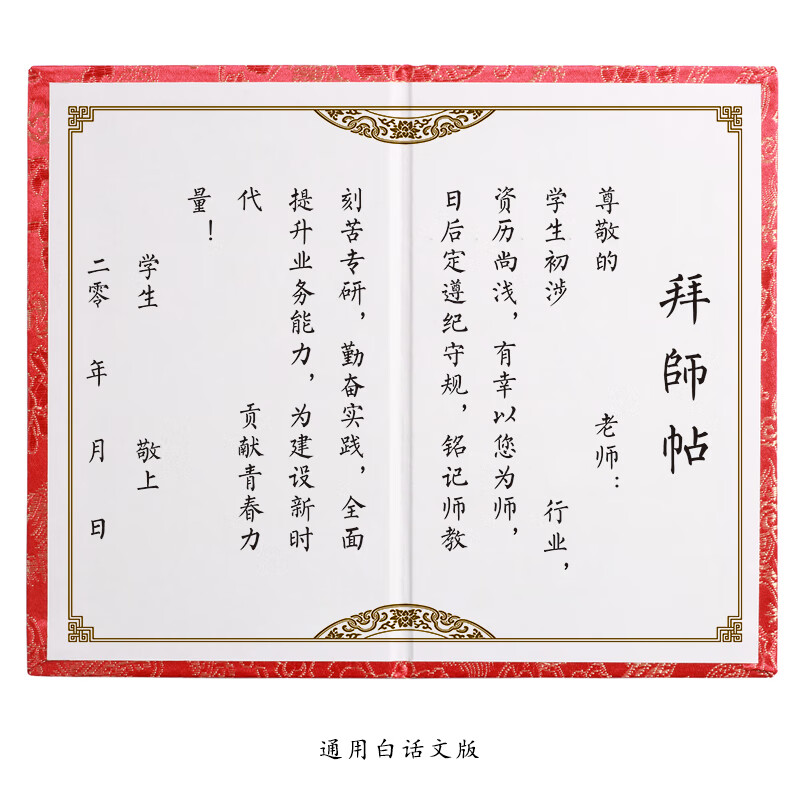 拜師帖
尊敬的 老师：
学生初涉 行业，
资历尚浅，有幸以您为师，
日后定遵纪守规，铭记师教
刻苦专研，勤奋实践，全面
提升业务能力，为建设新时
代 贡献青春力
量！
学生 敬上
二零 年 月 日
通用白话文版